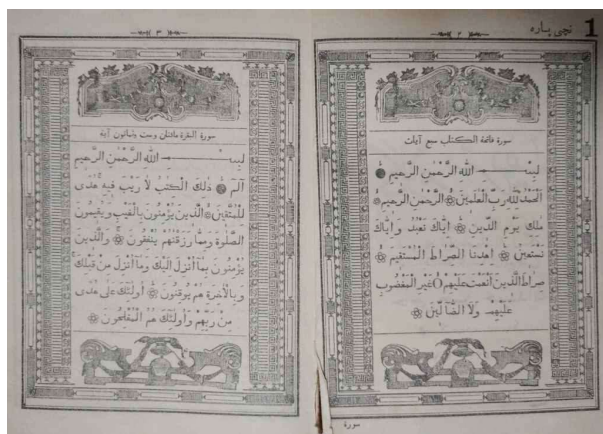 1 نچی پاره
٢
سورة فاتحة الكتاب سبع آيات
بسم الله الرَّحْمٰنِ الرَّحِيمِ
اَلْحَمْدُ لِلّٰهِ رَبِّ الْعٰلَمِينَ الرَّحْمٰنِ الرَّحِيمِ
مٰلِكِ يَوْمِ الدِّينِ اِيَّاكَ نَعْبُدُ وَاِيَّاكَ
نَسْتَعِينُ اِهْدِنَا الصِّرَاطَ الْمُسْتَقِيمَ
صِرَاطَ الَّذِينَ اَنْعَمْتَ عَلَيْهِمْ غَيْرِ الْمَغْضُوبِ
عَلَيْهِمْ وَلَا الضَّالِّينَ
سورة
٣
سورة البقرة مائتان وست وثمانون آية
بسم الله الرَّحْمٰنِ الرَّحِيمِ
الٓمٓ ذٰلِكَ الْكِتٰبُ لَا رَيْبَ فِيهِ هُدًى
لِلْمُتَّقِينَ الَّذِينَ يُؤْمِنُونَ بِالْغَيْبِ وَيُقِيمُونَ
الصَّلٰوةَ وَمِمَّا رَزَقْنٰهُمْ يُنْفِقُونَ وَالَّذِينَ
يُؤْمِنُونَ بِمَٓا اُنْزِلَ اِلَيْكَ وَمَٓا اُنْزِلَ مِنْ قَبْلِكَ
وَبِالْاٰخِرَةِ هُمْ يُوقِنُونَ اُولٰٓئِكَ عَلٰى هُدًى
مِنْ رَبِّهِمْ وَاُولٰٓئِكَ هُمُ الْمُفْلِحُونَ